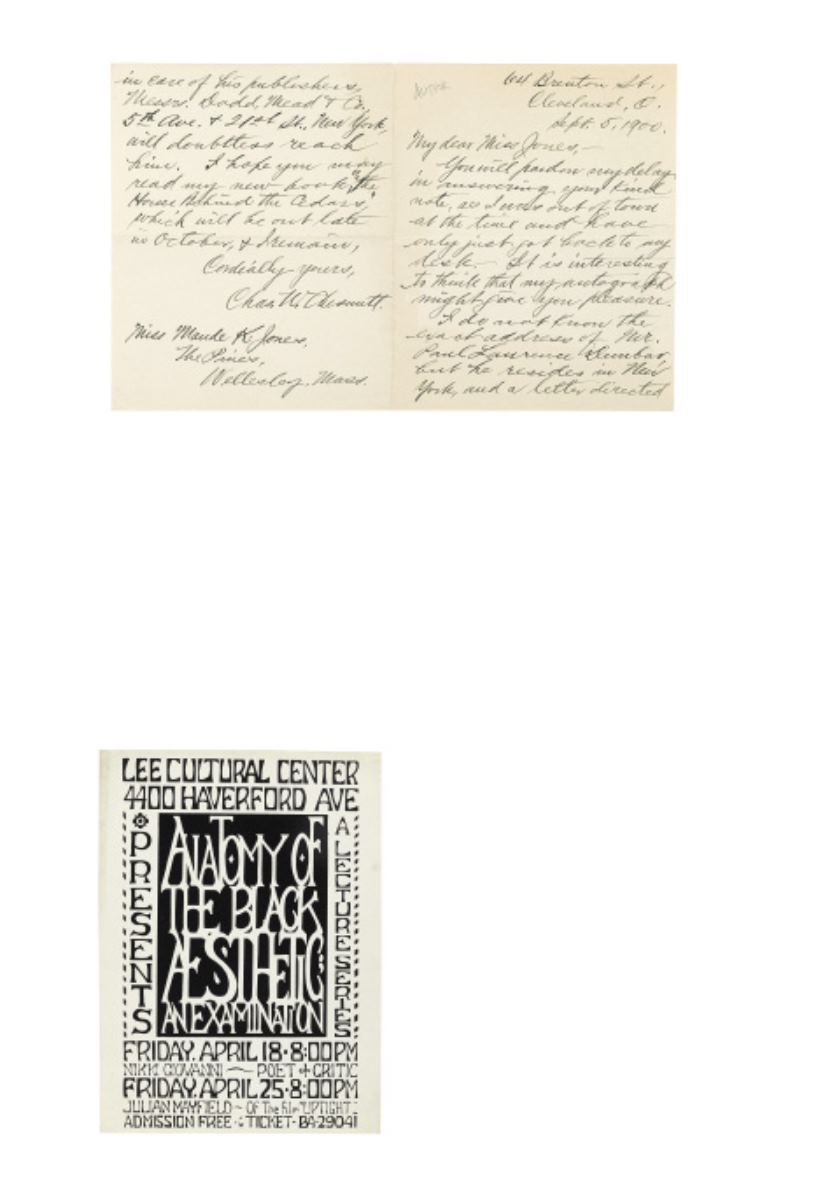 64 Brenton St.,
Cleveland, O.
Sept. 5, 1900.
My dear Miss Jones,—
You will pardon my delay
in answering your kind
note, as I was out of town
at the time and have
only just got back to my
desk.— It is interesting
to think that my autograph
might give you pleasure.
I do not know the
exact address of Mr.
Paul Laurence Dunbar,
but he resides in New
York, and a letter directed
in care of his publishers,
Messrs. Dodd, Mead & Co.,
5th Ave. & 21st St., New York,
will doubtless reach
him. I hope you may
read my new book, "The
House Behind the Cedars,"
which will be out late
in October, & I remain,
Cordially yours,
Chas. W. Chesnutt.
Miss Maude K. Jones,
The Pines,
Wellesley, Mass.
LEE CULTURAL CENTER
4400 HAVERFORD AVE
PRESENTS
ANATOMY OF
THE BLACK
AESTHETIC:
AN EXAMINATION
A LECTURE SERIES
FRIDAY. APRIL 18·8:00PM
NIKKI GIOVANNI — POET + CRITIC
FRIDAY. APRIL 25·8:00PM
JULIAN MAYFIELD ~ OF The film "UPTIGHT"
ADMISSION FREE · TICKET · BA-29041